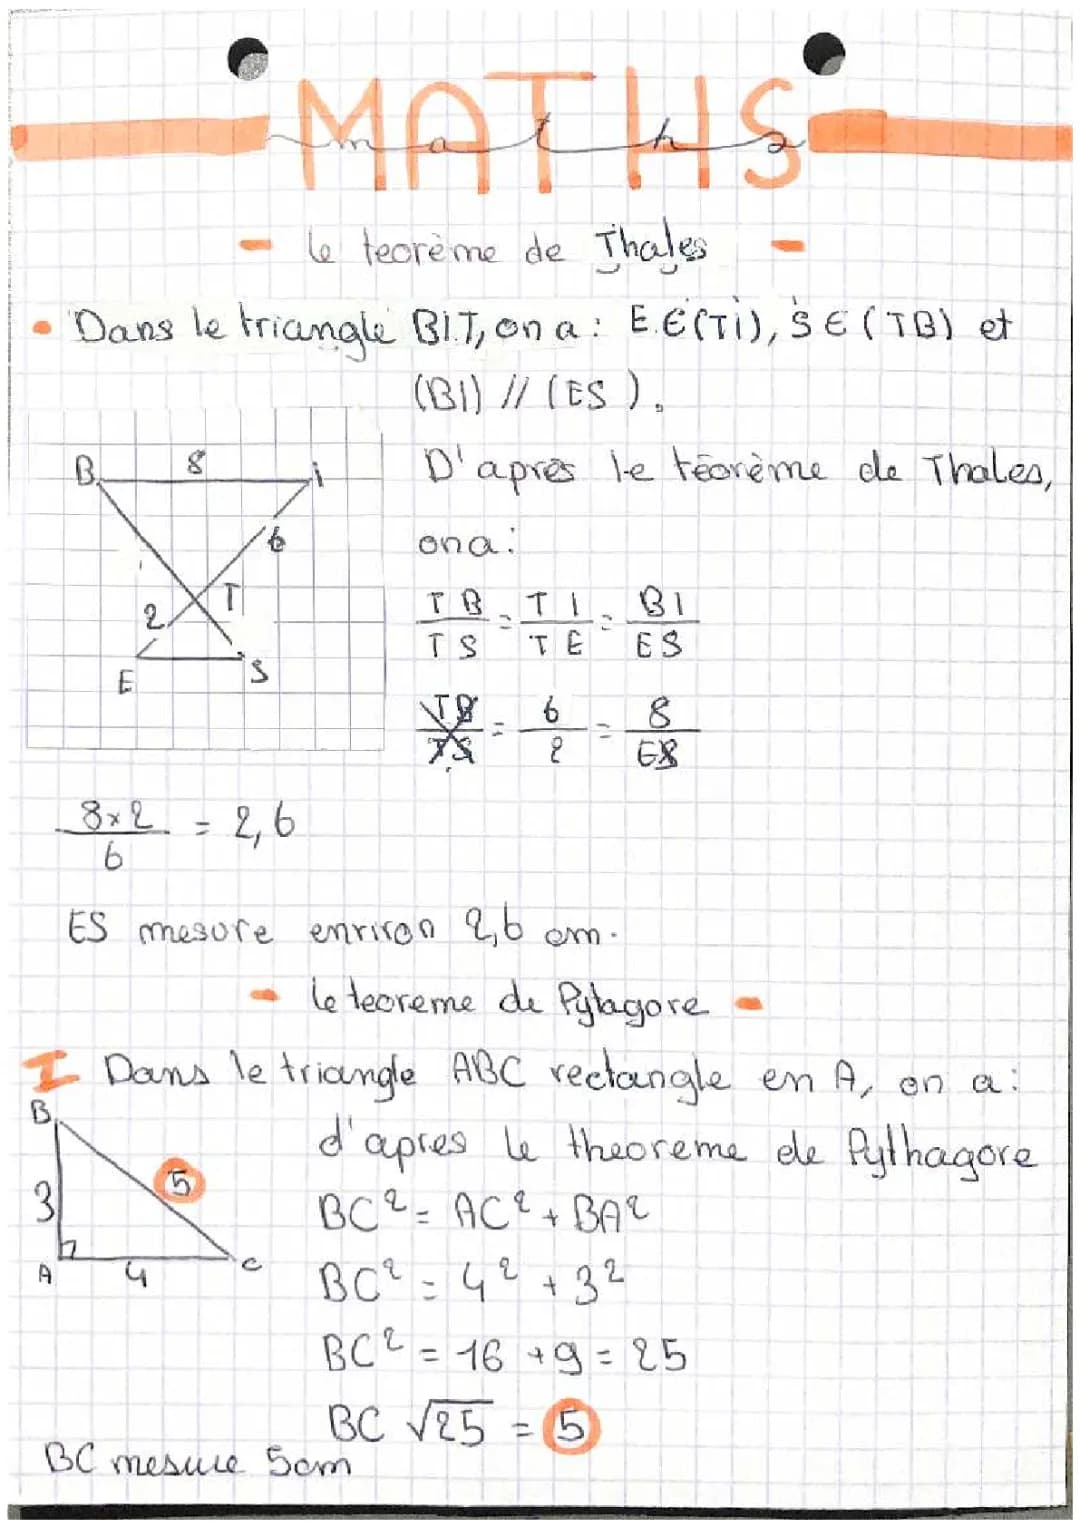 MATHS
maths
- le teorème de Thales -
• Dans le triangle BIT, on a : E ∈ (Ti), S ∈ (TB) et
(BI) // (ES).
B 8 i
6
T
2
E S
D'après le téorème de Thales,
on a :
TB/TS = TI/TE = BI/ES
TB/TS = 6/2 = 8/ES
8×2/6 = 2,6
ES mesure enriron 2,6 cm.
- le teoreme de Pytagore -
I Dans le triangle ABC rectangle en A, on a :
B
3
5
A 4 C
d'apres le theoreme de Pythagore
BC² = AC² + BA²
BC² = 4² + 3²
BC² = 16 + 9 = 25
BC √25 = 5
BC mesure 5cm